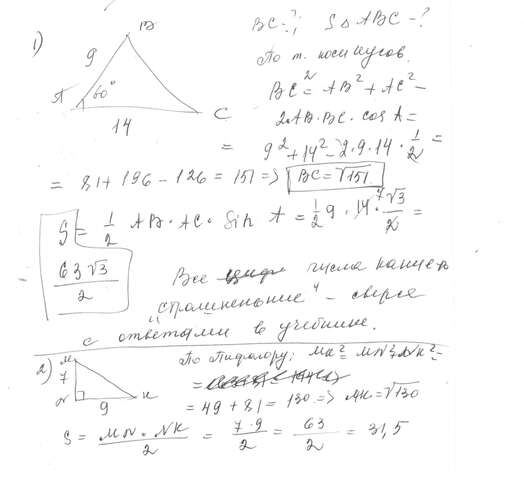 1)
B
9
A
60°
C
14
BC-?; S△ABC-?
По т. косинусов.
BC² = AB² + AC² -
2AB·BC·cos A =
= 9² + 14² - 2·9·14·1/2 =
= 81 + 196 - 126 = 151 => BC = √151
S = 1/2 AB·AC·Sin A = 1/2 9·14·√3/2 =
7
63√3/2
Все числа какие-то
"страшненькие" - сверься
с ответами в учебнике.
2)
M
7
N
9
K
По Пифагору: MK² = MN² + NK² =
= 49 + 81 = 130 => MK = √130
S = MN·NK/2 = 7·9/2 = 63/2 = 31,5